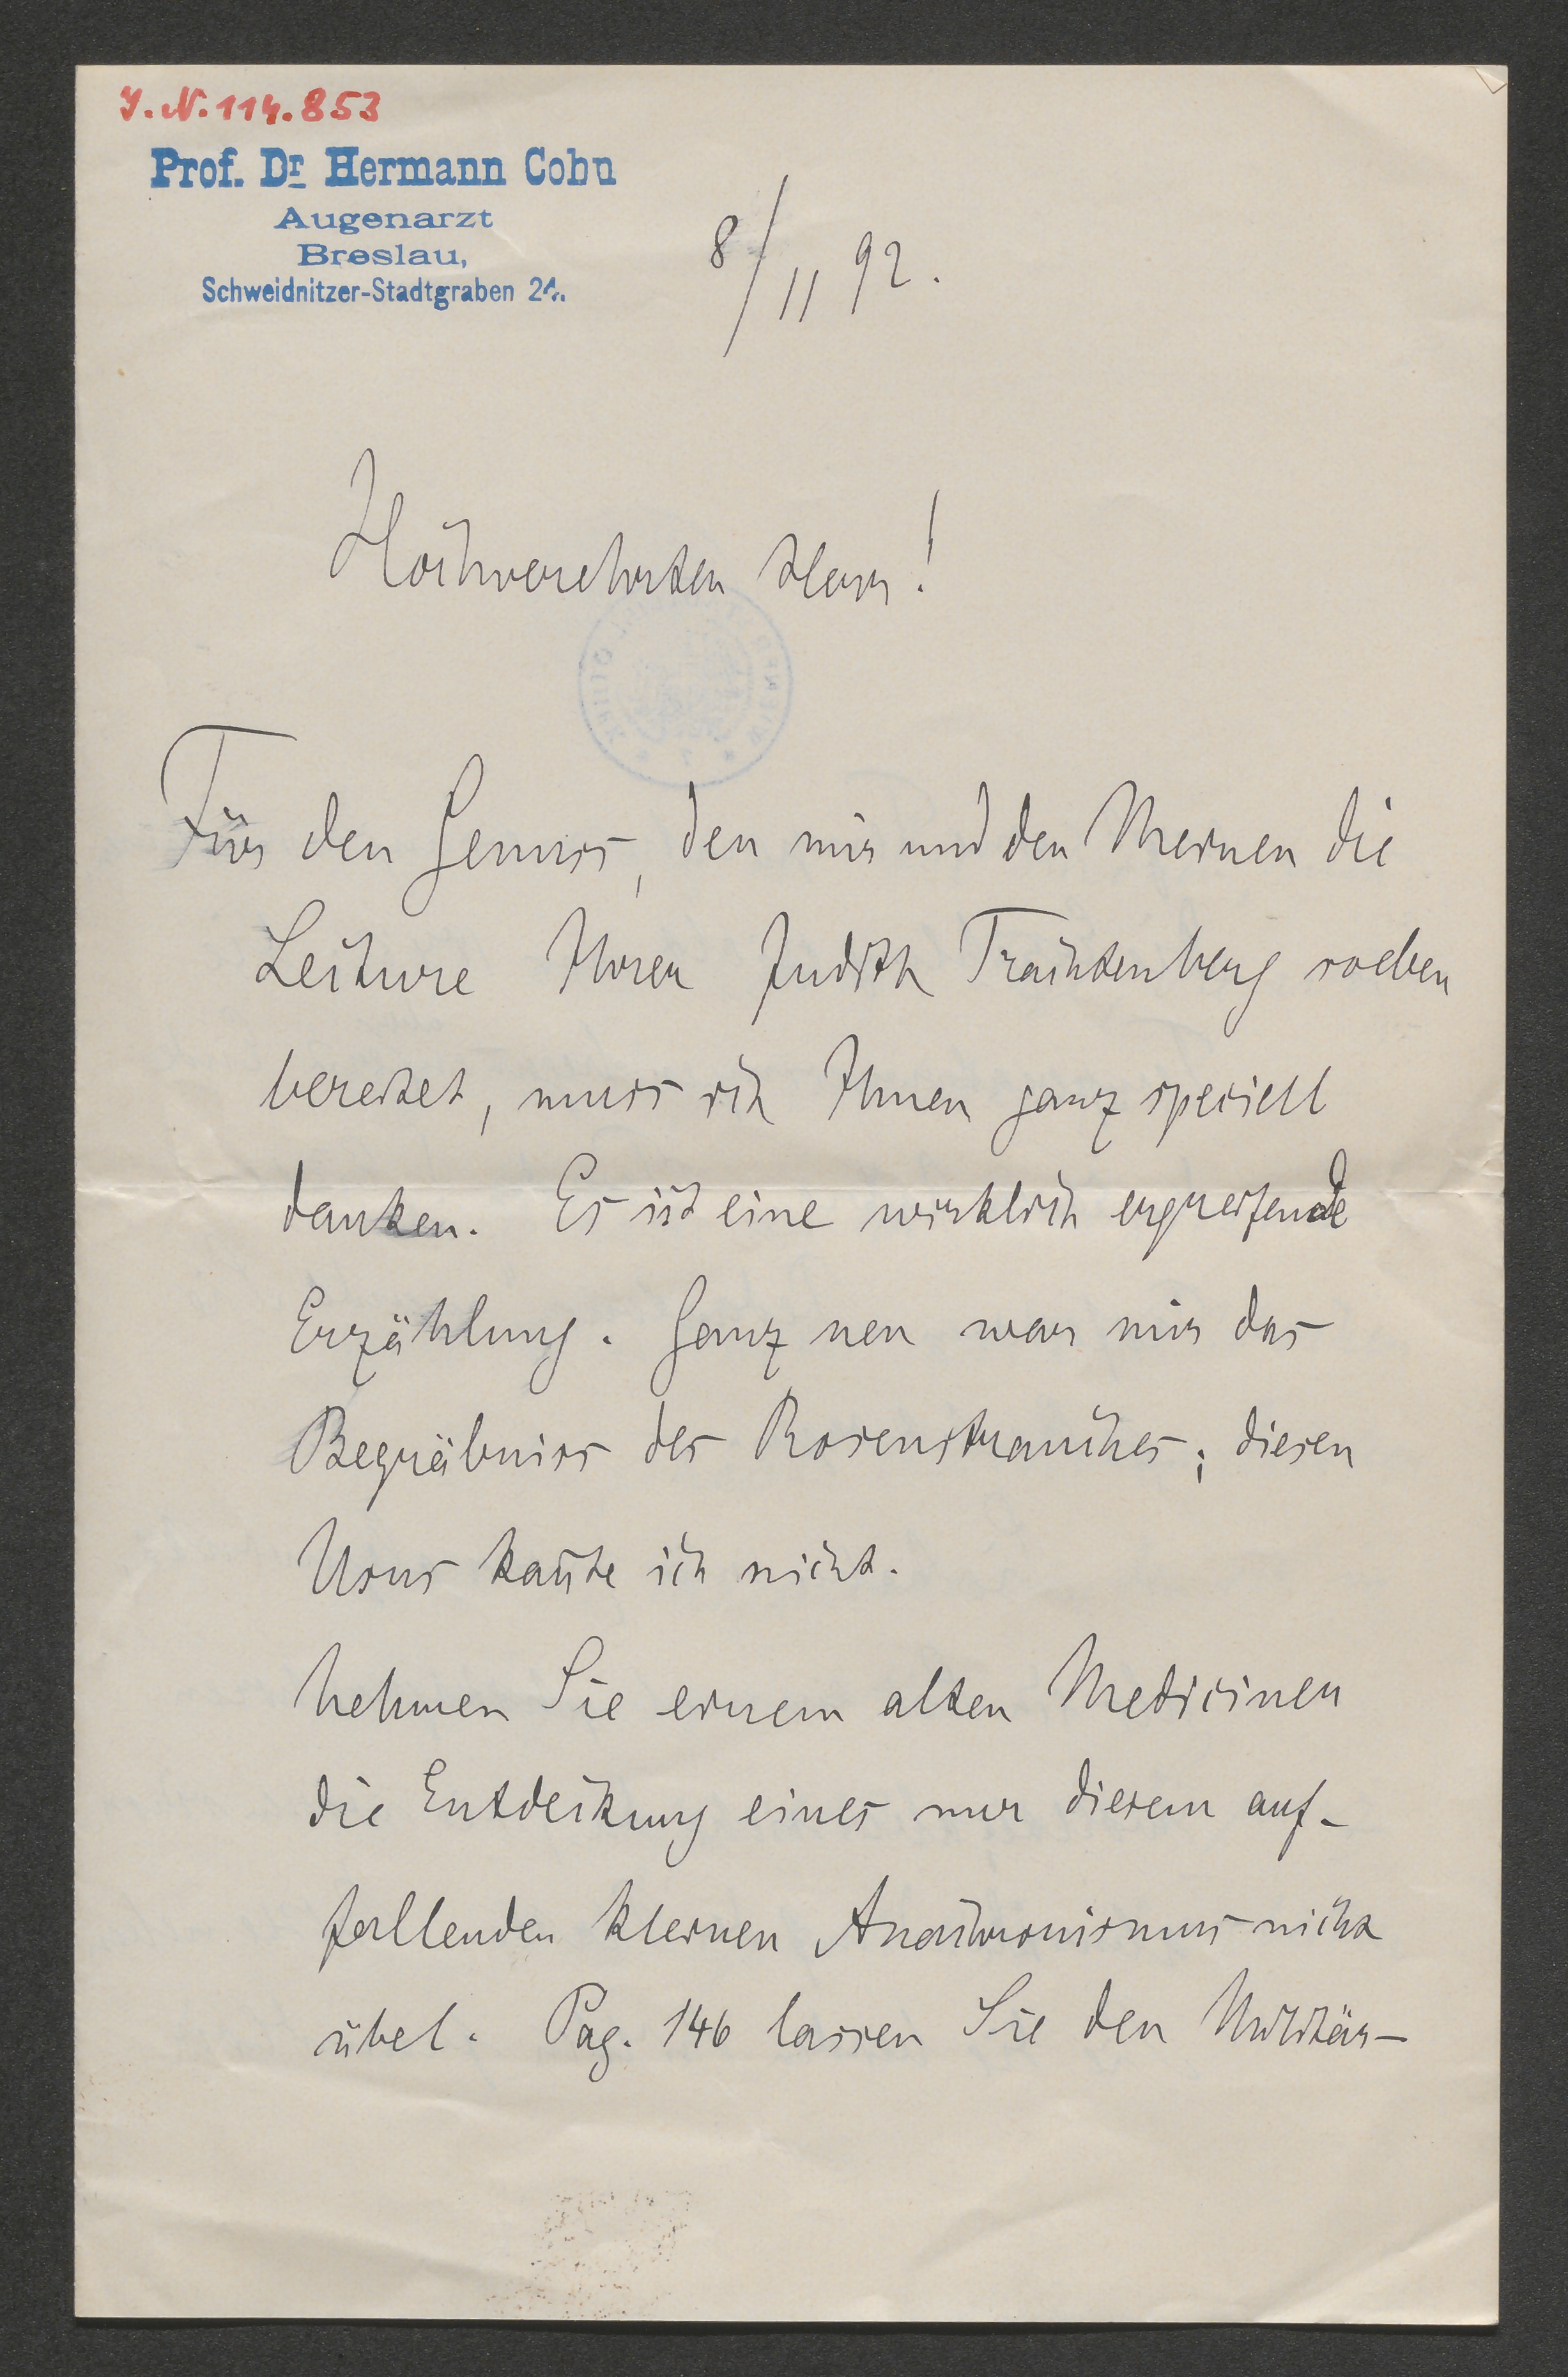 J.N. 114.853
Prof. Dr. Hermann Cohn
Augenarzt
Breslau,
Schweidnitzer-Stadtgraben
8/11 92.
Hochverehrter Herr!
Für den Genuss, den mir und den Meinen die
Lecture Ihrer Judith Trachtenberg soeben
bereitet, muss ich Ihnen ganz speciell
danken. Es ist eine wirklich ergreifende
Erzählung. Ganz neu war mir das
Begräbniss des Rosenstrauches; diesen
Usus kan̄te ich nicht.
Nehmen Sie einem alten Mediciner
die Entdeckung eines nur diesem auf-
fallenden kleinen Anachronismus nicht
übel. Pag. 146 lassen Sie den Militär-